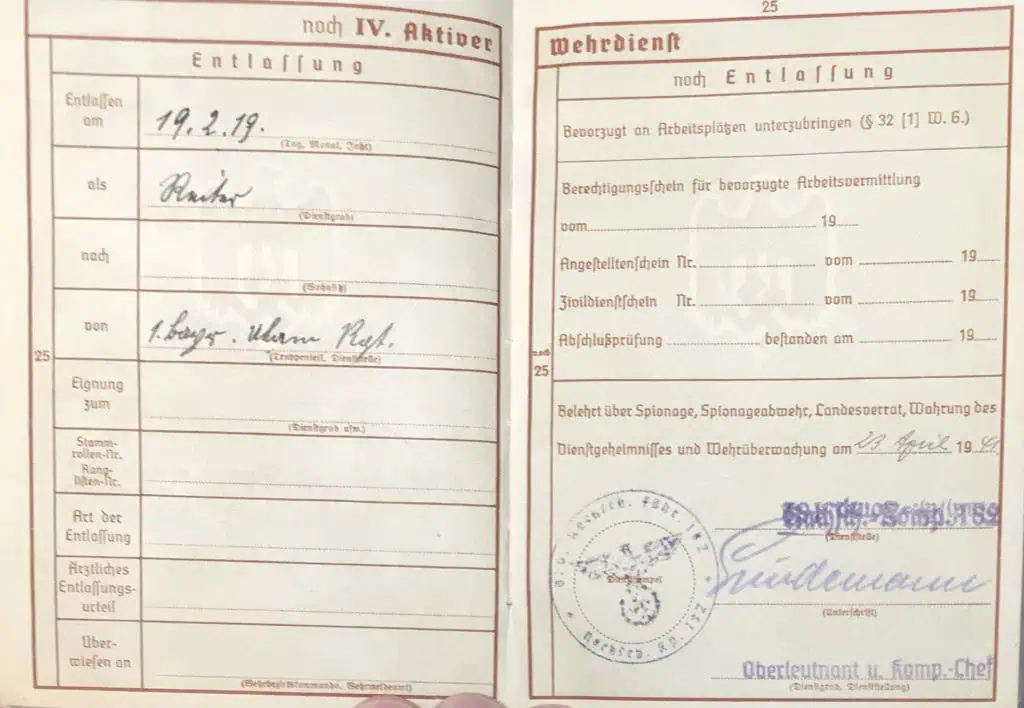 noch IV. Aktiver
Entlassung
Entlassen
am
19. 2. 19.
(Tag, Monat, Jahr)
als
Reiter
(Dienstgrad)
nach
(Wohnsitz)
von
1. bayr. Ulan Rgt.
(Truppenteil, Dienststelle)
25
Eignung
zum
(Dienstgrad usw.)
Stamm-
rollen-Nr.
Rang-
listen-Nr.
Art der
Entlassung
Ärztliches
Entlassungs-
urteil
Über-
wiesen an
(Wehrbezirkskommando, Wehrmeldeamt)
25
Wehrdienst
noch Entlassung
Bevorzugt an Arbeitsplätzen unterzubringen (§ 32 [1] W. G.)
Berechtigungsschein für bevorzugte Arbeitsvermittlung
vom 19
Angestelltenschein Nr. vom 19
Zivildienstschein Nr. vom 19
Abschlußprüfung bestanden am 19
noch
25
Belehrt über Spionage, Spionageabwehr, Landesverrat, Wahrung des
Dienstgeheimnisses und Wehrüberwachung am 23 April 19 41
Nachsch.-Komp. 182
(Dienststelle)
Nachsch. Führ. 182
Dienststempel
Nachsch. Kp. 182
(Unterschrift)
Oberleutnant u. Komp.-Chef
(Dienstgrad, Dienststellung)